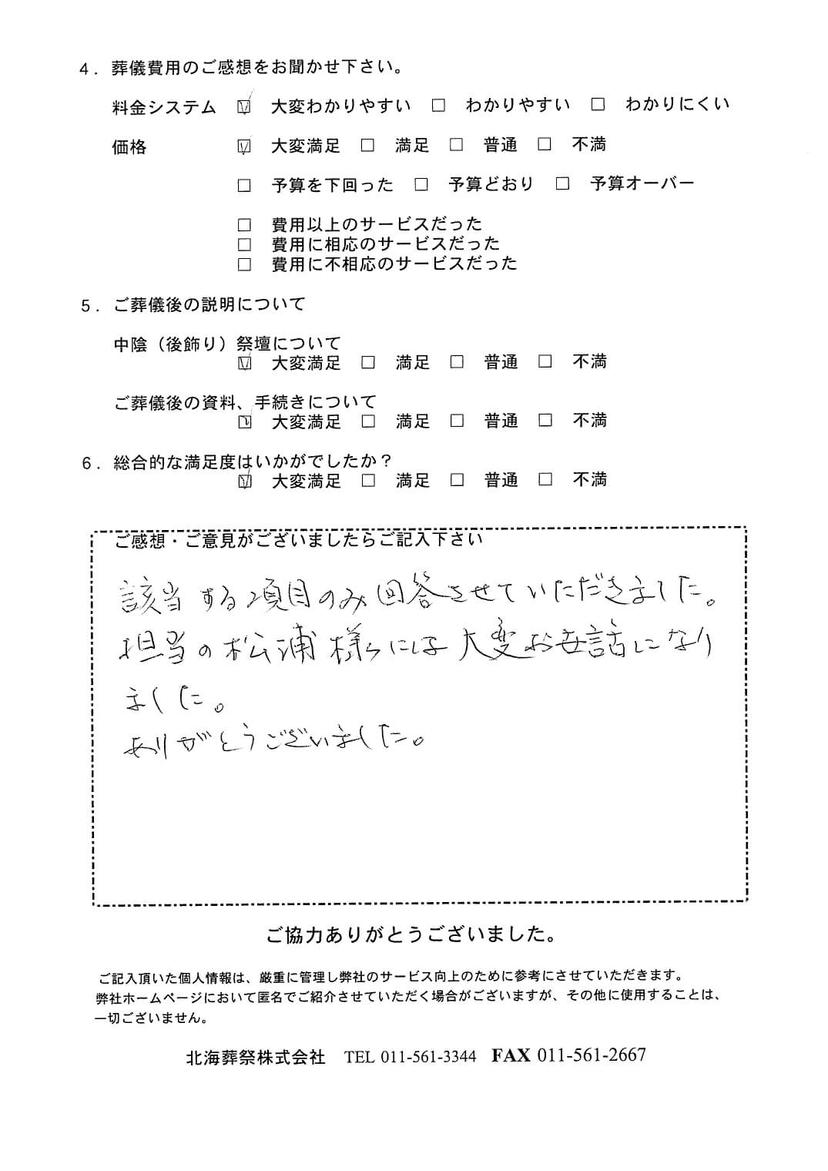 4. 葬儀費用のご感想をお聞かせ下さい。
料金システム ☑ 大変わかりやすい □ わかりやすい □ わかりにくい
価格 ☑ 大変満足 □ 満足 □ 普通 □ 不満
□ 予算を下回った □ 予算どおり □ 予算オーバー
□ 費用以上のサービスだった
□ 費用に相応のサービスだった
□ 費用に不相応のサービスだった
5. ご葬儀後の説明について
中陰（後飾り）祭壇について
☑ 大変満足 □ 満足 □ 普通 □ 不満
ご葬儀後の資料、手続きについて
☑ 大変満足 □ 満足 □ 普通 □ 不満
6. 総合的な満足度はいかがでしたか？
☑ 大変満足 □ 満足 □ 普通 □ 不満
ご感想・ご意見がございましたらご記入下さい
該当する項目のみ回答させていただきました。
担当の松浦様には大変お世話になり
ました。
ありがとうございました。
ご協力ありがとうございました。
ご記入頂いた個人情報は、厳重に管理し弊社のサービス向上のために参考にさせていただきます。
弊社ホームページにおいて匿名でご紹介させていただく場合がございますが、その他に使用することは、
一切ございません。
北海葬祭株式会社 TEL 011-561-3344 FAX 011-561-2667